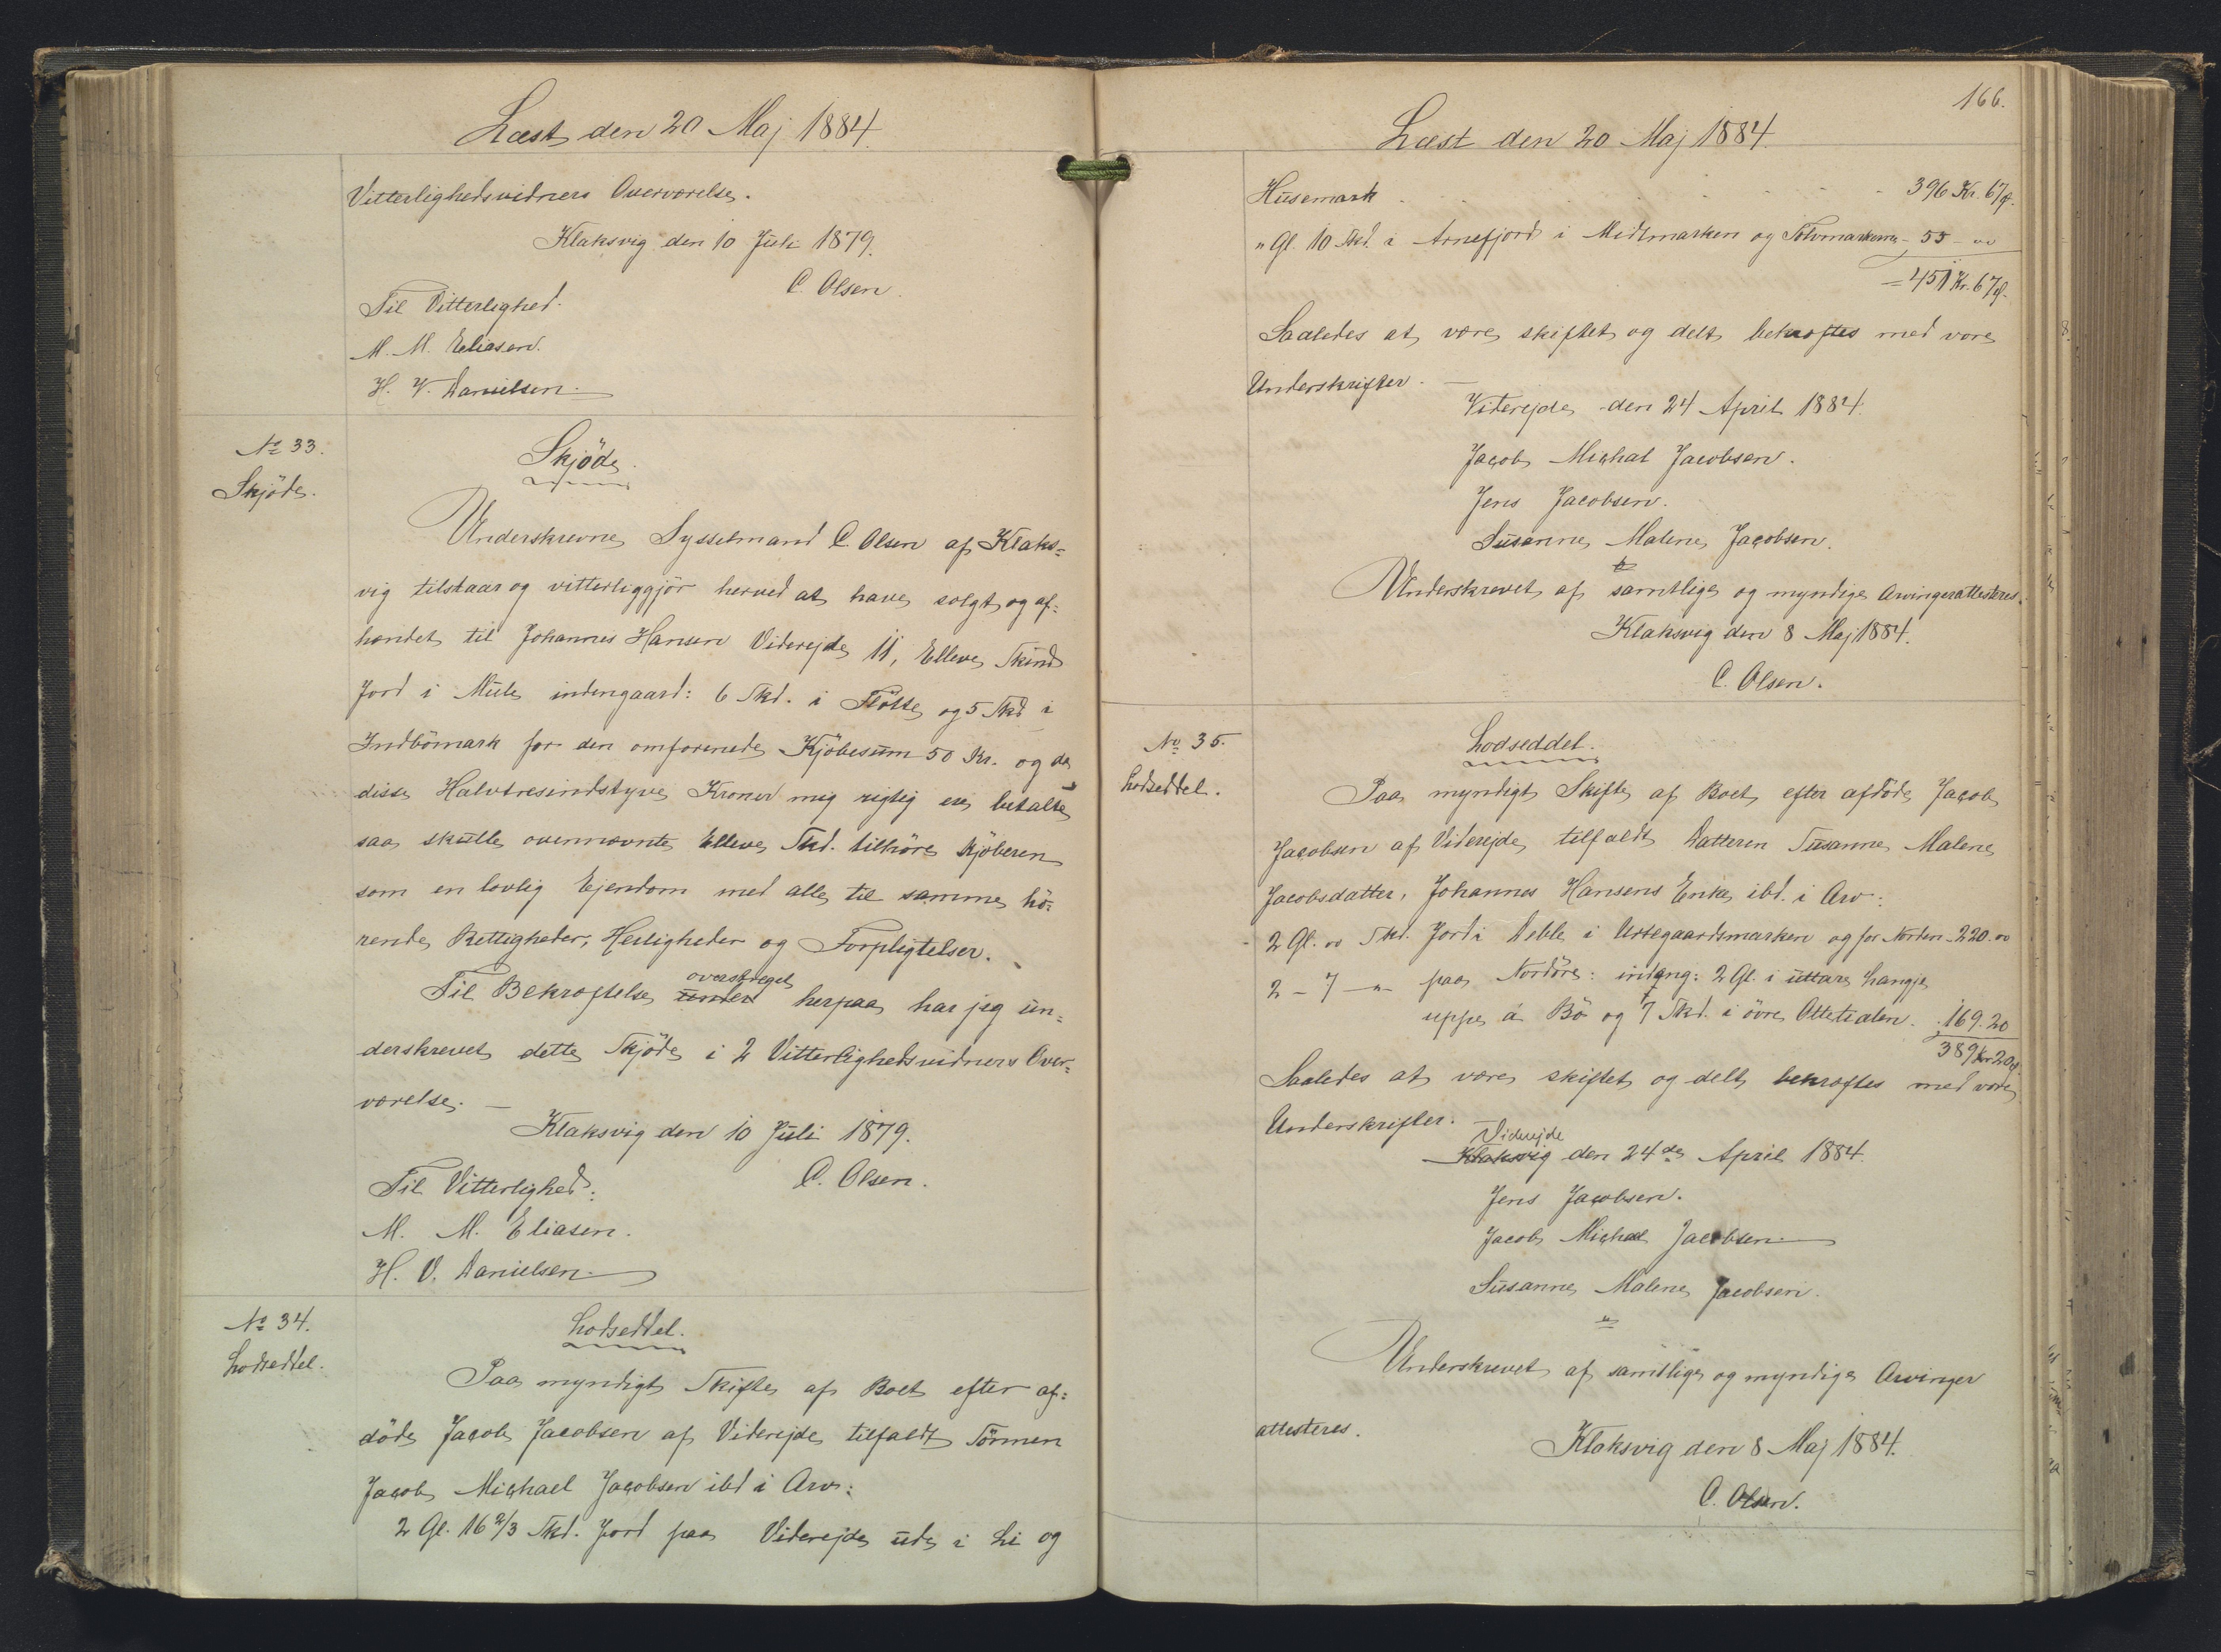 Læst den 20 Maj 1884.
Vitterlighedsvidners Overværelse.
Klaksvig den 10 Juli 1879.
C. Olsen.
Til Vitterlighed.
M. M. Eliasen.
H. V. Danielsen.
№ 33.
Skjöde.
Skjöde.
Underskrevne Sysselmand C. Olsen af Klaks-
vig tilstaar og vitterliggjör herved at have solgt og af-
hændet til Johannes Hansen Viderejde 11, Elleve Skind
Jord i Mule indengaard: 6 Skd. i Flötte og 5 Skd i
Indbömark for den omforenede Kjöbesum 50 Kr. og da
disse Halvtresindstyve Kroner mig rigtig ere betalte
saa skulle ovennævnte Elleve Skd. tilhöre Kjöberen
som en lovlig Ejendom med alle til samme hö-
rende Rettigheder, Herligheder og Forpligtelser.
overstreget
Til Bekræftelse under herpaa har jeg un-
derskrevet dette Skjöde i 2 Vitterlighedsvidners Over-
værelse. —
Klaksvig den 10 Juli 1879.
C. Olsen.
Til Vitterlighed:
M. M. Eliasen.
H. V. Danielsen.
№ 34.
Lodseddel.
Lodseddel.
Paa myndigt Skifte af Boet efter af-
döde Jacob Jacobsen af Viderejde tilfaldt Sönnen
Jacob Michael Jacobsen ibd i Arv:
2 Gl. 16 2/3 Skd. Jord paa Viderejde ude i Li og
166.
Læst den 20 Maj 1884.
Husemark . . . . - 396 Kr. 67 Ø.
" Gl. 10 Skd. i Arnefjord i Midtmarken og - 55 - "
= 451 Kr. 67 Ø.
Saaledes at være skiftet og delt bekræftes med vore
Underskrifter. —
Viderejde den 24 April 1884.
Jacob Michal Jacobsen.
Jens Jacobsen.
Susanne Malene Jacobsen.
Underskrevet af samtlige og myndige Arvinger attesteres.
Klaksvig den 8 Maj 1884.
C. Olsen.
№ 35.
Lodseddel.
Lodseddel.
Paa myndigt Skifte af Boet efter afdöde Jacob
Jacobsen af Viderejde tilfaldt Datteren Susanne Malene
Jacobsdatter, Johannes Hansens Enke ibd. i Arv:
2 Gl. " Skd. Jord i Deble i Ursegaardsmarken og for Norden - 220. "
2 - 7 - " - paa Nordöre: indgng: 2 Gl. i uttare hangje
uppe á Bö og 7 Skd. i övre Ottetialen. . 169. 20
389 Kr 20 Ø.
Saaledes at være skiftet og delt bekræftes med vore
Underskrifter.
Viderejde
Klaksvig den 24de April 1884.
Jens Jacobsen.
Jacob Michael Jacobsen
Susanne Malene Jacobsen.
Underskrevet af samtlige og myndige Arvinger
attesteres.
Klaksvig den 8 Maj 1884.
C. Olsen.